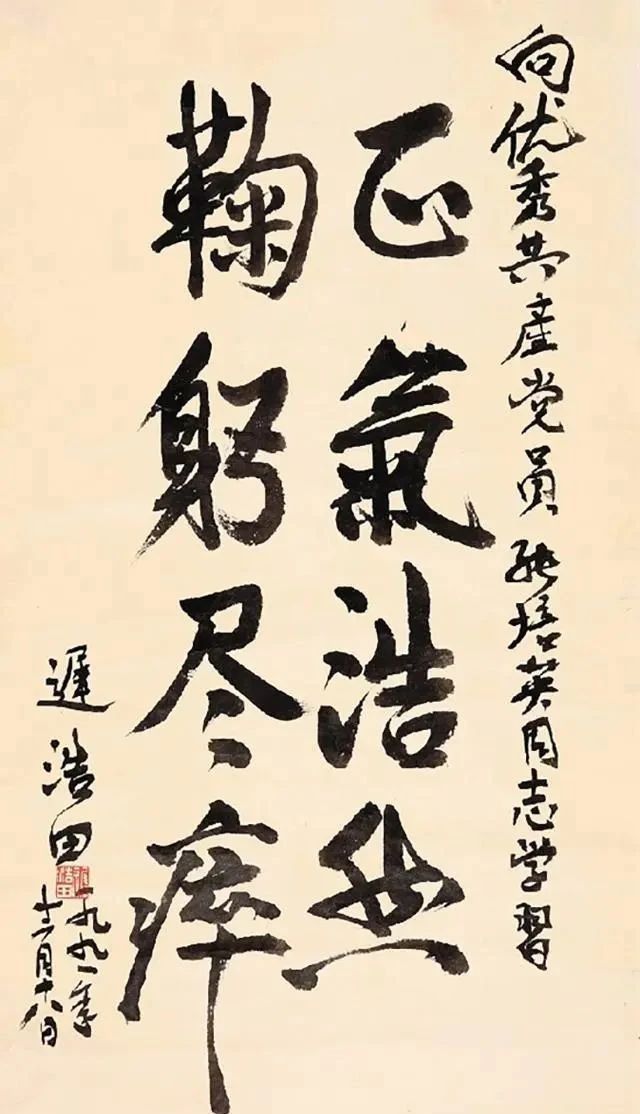 向优秀共產党员 培英同志学習
正氣浩然
鞠躬尽瘁
遲浩田
一九九一年
十二月十八日